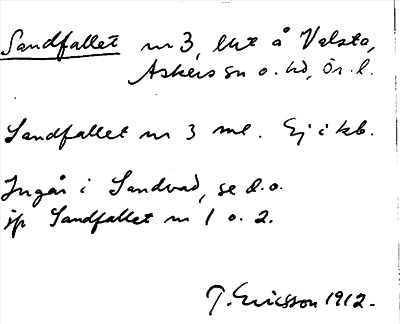 Sandfallet nr 3, lht å Valsta,
Askers sn o. hd, Ör. l.
Sandfallet nr 3 ml. Ej i kb.
Ingår i Sandvad, se d. o.
jp Sandfallet nr 1 o. 2.
J. Ericsson 1912.